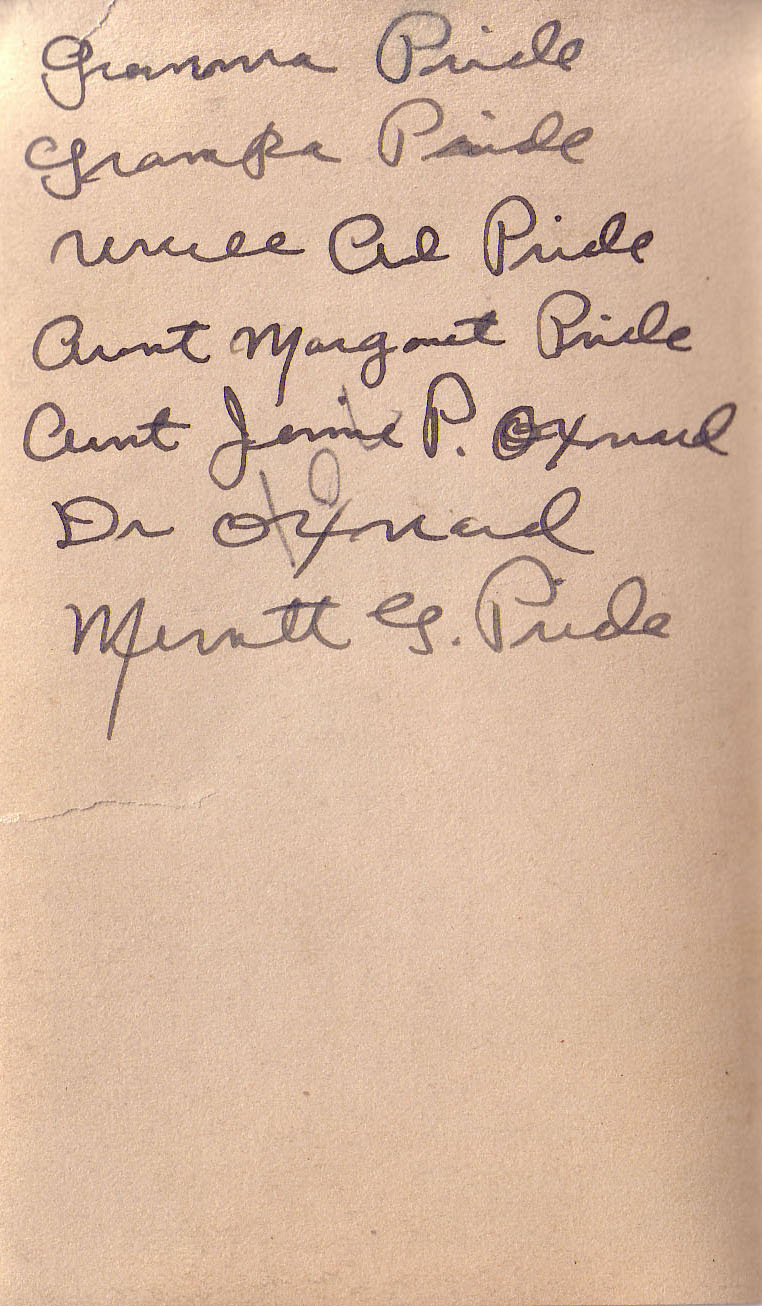 Gramma Pride
Grampa Pride
Uncle Ad Pride
Aunt Margaret Pride
Aunt Jennie P. Oxnard
Dr Oxnard
Merritt G. Pride